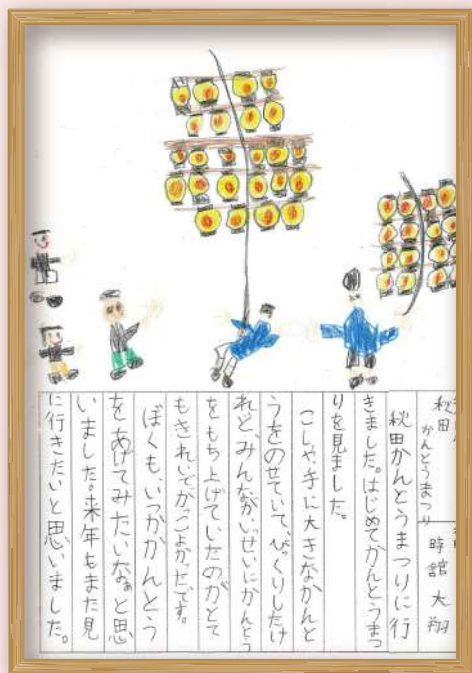 秋田
かんとうまつり
時舘 大翔
秋田かんとうまつりに行
きました。はじめてかんとうまつ
りを見ました。
こしや手に大きなかんと
うをのせていて、びっくりしたけ
れど、みんながいっせいにかんとう
をもち上げていたのがとて
もきれいでかっこよかったです。
ぼくも、いつかかんとう
をあげてみたいなぁと思
いました。来年もまた見
に行きたいと思いました。